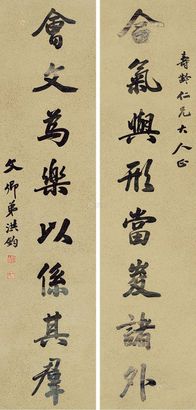 壽齡仁兄大人正
合氣與形當諸外
會文為樂以係其羣
文卿弟洪鈞